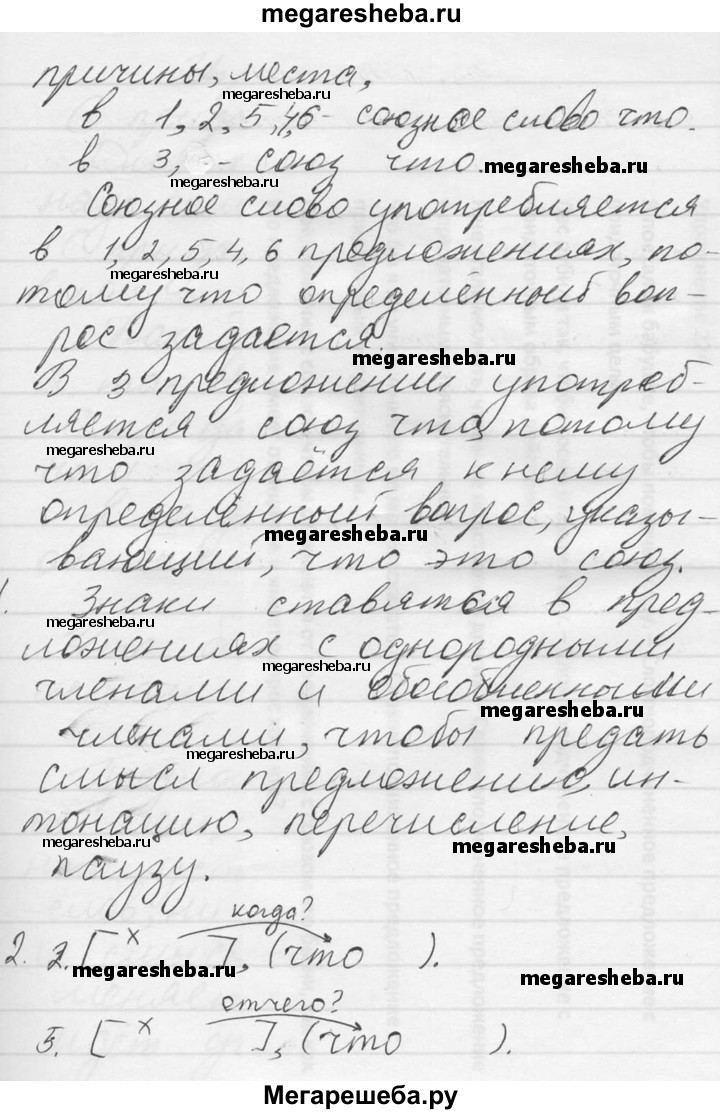 megaresheba.ru
причины, места,
megaresheba.ru
в 1, 2, 5, 4, 6 - союзное слово что.
в 3, - союз что.
megaresheba.ru
megaresheba.ru
Союзное слово употребляется
в 1, 2, 5, 4, 6 предложениях, по-
megaresheba.ru
тому что определённый воп-
рос задаётся.
megaresheba.ru
В 3 предложении употреб-
ляется союз что, потому
megaresheba.ru
что задаётся к нему
определённый вопрос, указы-
megaresheba.ru
вающий, что это союз.
1. Знаки ставятся в пред-
megaresheba.ru
ложениях с однородными
megaresheba.ru
членами и обособленными
megaresheba.ru
членами, чтобы предать
megaresheba.ru
смысл предложению, ин-
тонацию, перечисление,
megaresheba.ru
паузу.
megaresheba.ru
когда?
2. 2. [ х ], (что ).
megaresheba.ru
megaresheba.ru
отчего?
megaresheba.ru
5. [ х ], (что ).
Мегарешеба.ру